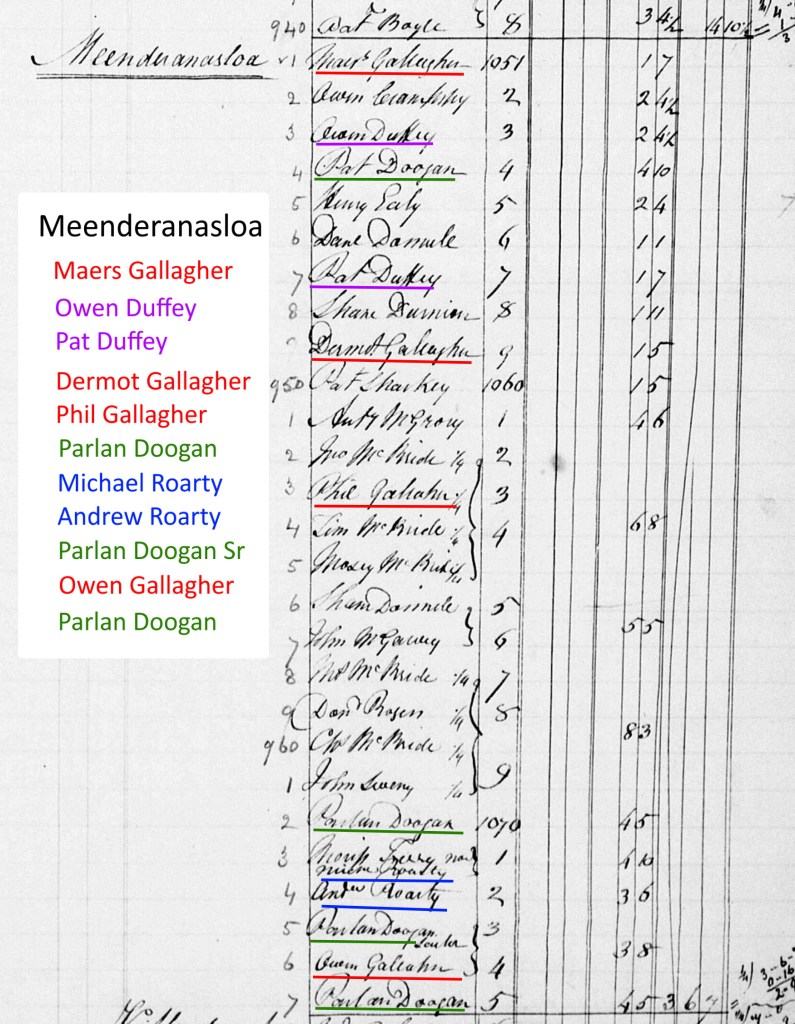 940 Pat Boyle } 8 3 4½ 14 10½
Meenderanasloa 1 Maers Gallagher 1051 1 7
2 Owen 2 2 4½
3 Owen Duffey 3 2 4½
4 Pat Doogan 4 4 10
5 Henry Early 5 2 4
6 Dane 6 1 1
7 Pat Duffey 7 1 7
8 Shane Durnian 8 1 11
9 Dermot Gallagher 9 1 5
950 Pat Sharkey 1060 1 5
1 Anty McGrory 1 4 6
2 Jno McBride ¼ 2
3 Phil Galiahur ¼ 3
4 Tim McBride ¼ 4 6 8
5 McBride ¼
6 Sham 5
5 5
7 John 6
8 McBride ¼ 7
9 Don ¼ 8
8 3
960 Chs McBride ¼
1 John Sweny ¼ 9
2 Parlan Doogan 1070 4 5
3 now 1 4 10
Roarty
4 Andw Roarty 2 3 6
5 Parlan Doogan 3
3 8
6 Owen Galiahur 4
7 Parlan Doogan 5 4 5 3 6
Meenderanasloa
Maers Gallagher
Owen Duffey
Pat Duffey
Dermot Gallagher
Phil Gallagher
Parlan Doogan
Michael Roarty
Andrew Roarty
Parlan Doogan Sr
Owen Gallagher
Parlan Doogan